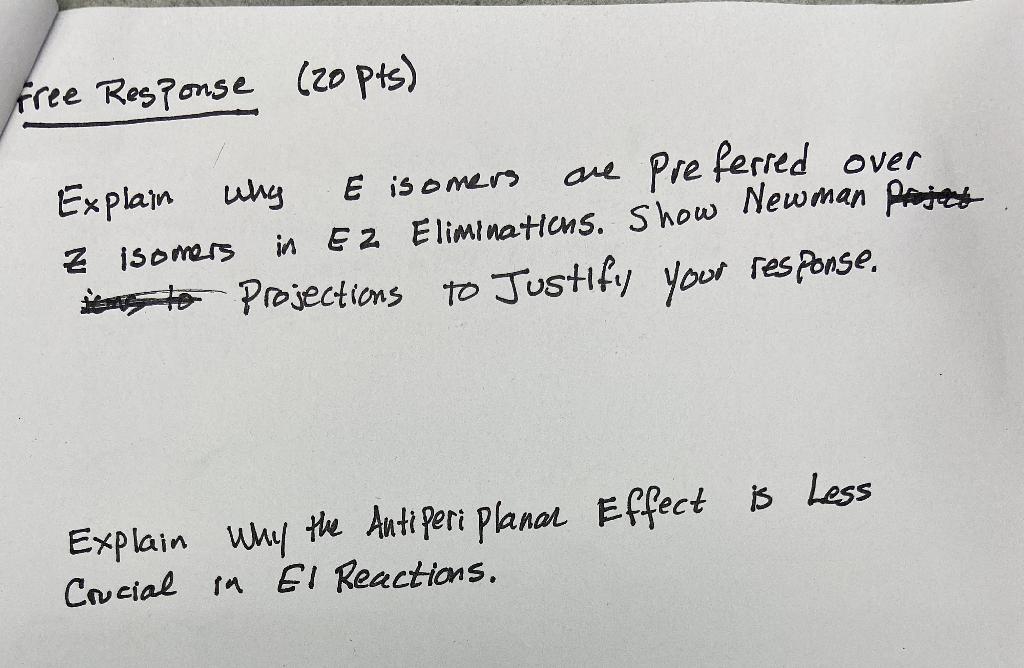 Free Response (20 pts)
Explain why E isomers are Preferred over
Z isomers in E2 Eliminations. Show Newman
Projections to Justify your response.
Explain Why the Antiperi planar Effect is Less
Crucial in E1 Reactions.